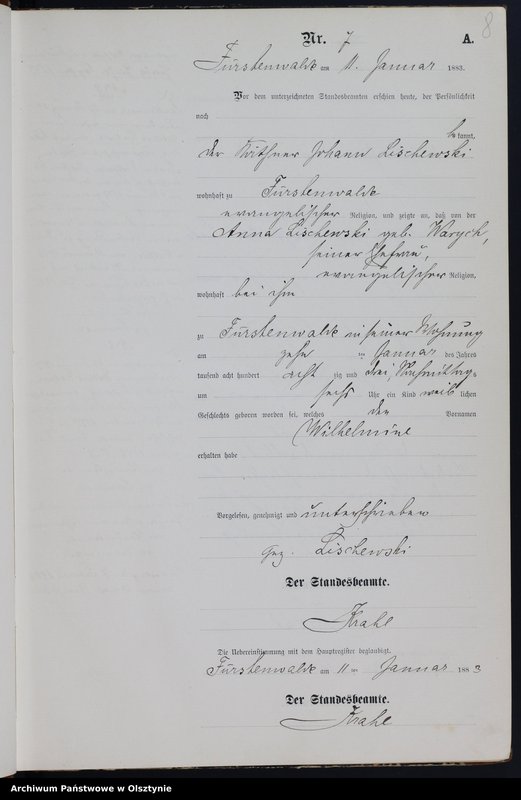 8
Nr. 7 A.
Fürstenwalde am 11. Januar 1883.
Vor dem unterzeichneten Standesbeamten erschien heute, der Persönlichkeit
nach
bekannt,
der Käthner Johann Lischewski
wohnhaft zu Fürstenwalde
evangelischer Religion, und zeigte an, daß von der
Anna Lischewski geb. Warych,
seiner Ehefrau,
evangelischer Religion,
wohnhaft bei ihm
zu Fürstenwalde in seiner Wohnung
am zehn ten Januar des Jahres
tausend acht hundert acht zig und drei, Nachmittags
um sechs Uhr ein Kind weib lichen
Geschlechts geboren worden sei, welches den Vornamen
Wilhelmine
erhalten habe
Vorgelesen, genehmigt und unterschrieben
gez. Lischewski
Der Standesbeamte.
Krahl
Die Uebereinstimmung mit dem Hauptregister beglaubigt.
Fürstenwalde am 11 ten Januar 1883
Der Standesbeamte.
Krahl
Archiwum Państwowe w Olsztynie